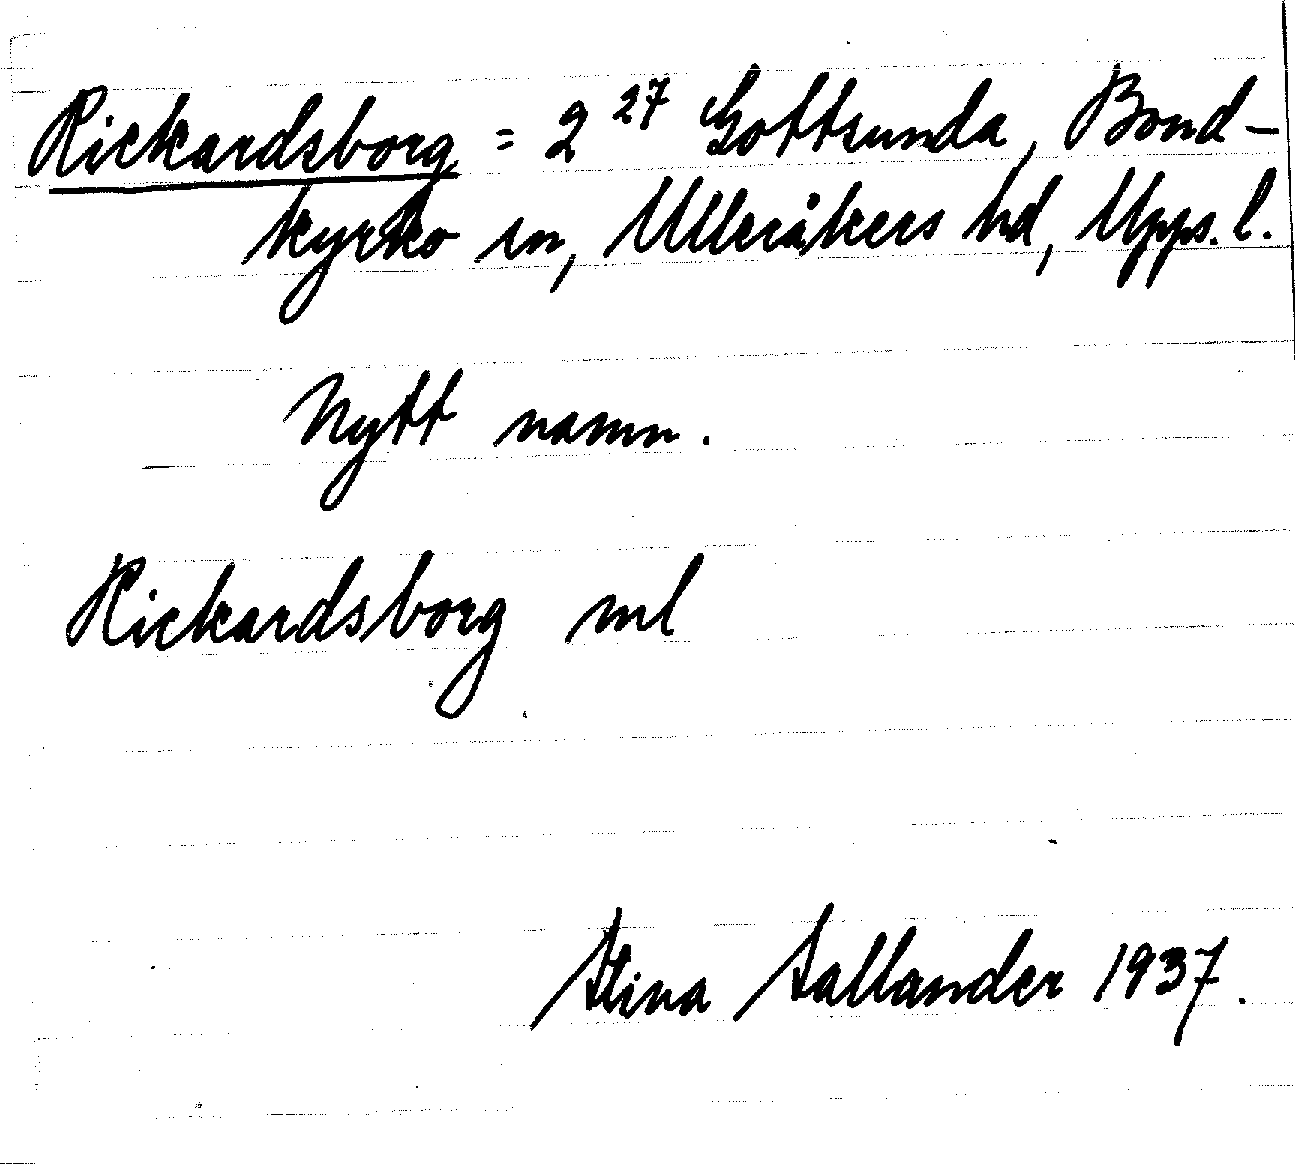 Rickardsborg = 2²⁷ Gottsunda, Bond-
kyrko sn, Ulleråkers hd, Upps. l.
Nytt namn.
Rickardsborg ml
Stina Sallander 1937.